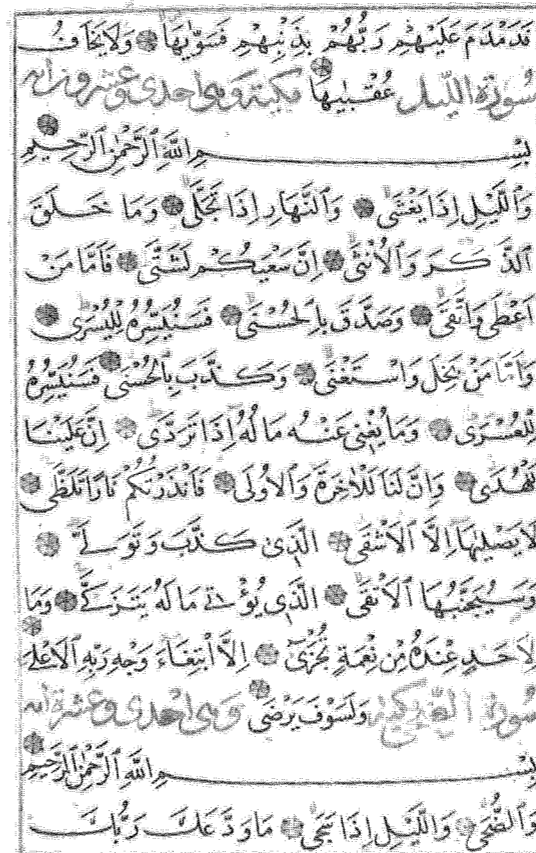 فَدَمْدَمَ عَلَيْهِمْ رَبُّهُمْ بِذَنْبِهِمْ فَسَوّٰيهَا وَلَا يَخَافُ
عُقْبٰيهَا سُورَةُ اللَّيْلِ مَكِّيَّةٌ وَهِيَ احْدٰى وَعِشْرُونَ اٰيَة
بِسْمِ اللّٰهِ الرَّحْمٰنِ الرَّحِيمِ
وَالَّيْلِ اِذَا يَغْشٰى وَالنَّهَارِ اِذَا تَجَلّٰى وَمَا خَلَقَ
الذَّكَرَ وَالْاُنْثٰى اِنَّ سَعْيَكُمْ لَشَتّٰى فَاَمَّا مَنْ
اَعْطٰى وَاتَّقٰى وَصَدَّقَ بِالْحُسْنٰى فَسَنُيَسِّرُهُ لِلْيُسْرٰى
وَاَمَّا مَنْ بَخِلَ وَاسْتَغْنٰى وَكَذَّبَ بِالْحُسْنٰى فَسَنُيَسِّرُهُ
لِلْعُسْرٰى وَمَا يُغْنِى عَنْهُ مَالُهُ اِذَا تَرَدّٰى اِنَّ عَلَيْنَا
لَلْهُدٰى وَاِنَّ لَنَا لَلْاٰخِرَةَ وَالْاُولٰى فَاَنْذَرْتُكُمْ نَارًا تَلَظّٰى
لَا يَصْلٰيهَا اِلَّا الْاَشْقٰى الَّذِى كَذَّبَ وَتَوَلّٰى
وَسَيُجَنَّبُهَا الْاَتْقٰى الَّذِى يُؤْتِى مَالَهُ يَتَزَكّٰى وَمَا
لِاَحَدٍ عِنْدَهُ مِنْ نِعْمَةٍ تُجْزٰى اِلَّا ابْتِغَاءَ وَجْهِ رَبِّهِ الْاَعْلٰى
وَلَسَوْفَ يَرْضٰى وَهِيَ احْدٰى وَعَشْرَةَ اٰيَة
بِسْمِ اللّٰهِ الرَّحْمٰنِ الرَّحِيمِ
وَالضُّحٰى وَالَّيْلِ اِذَا سَجٰى مَا وَدَّعَكَ رَبُّكَ